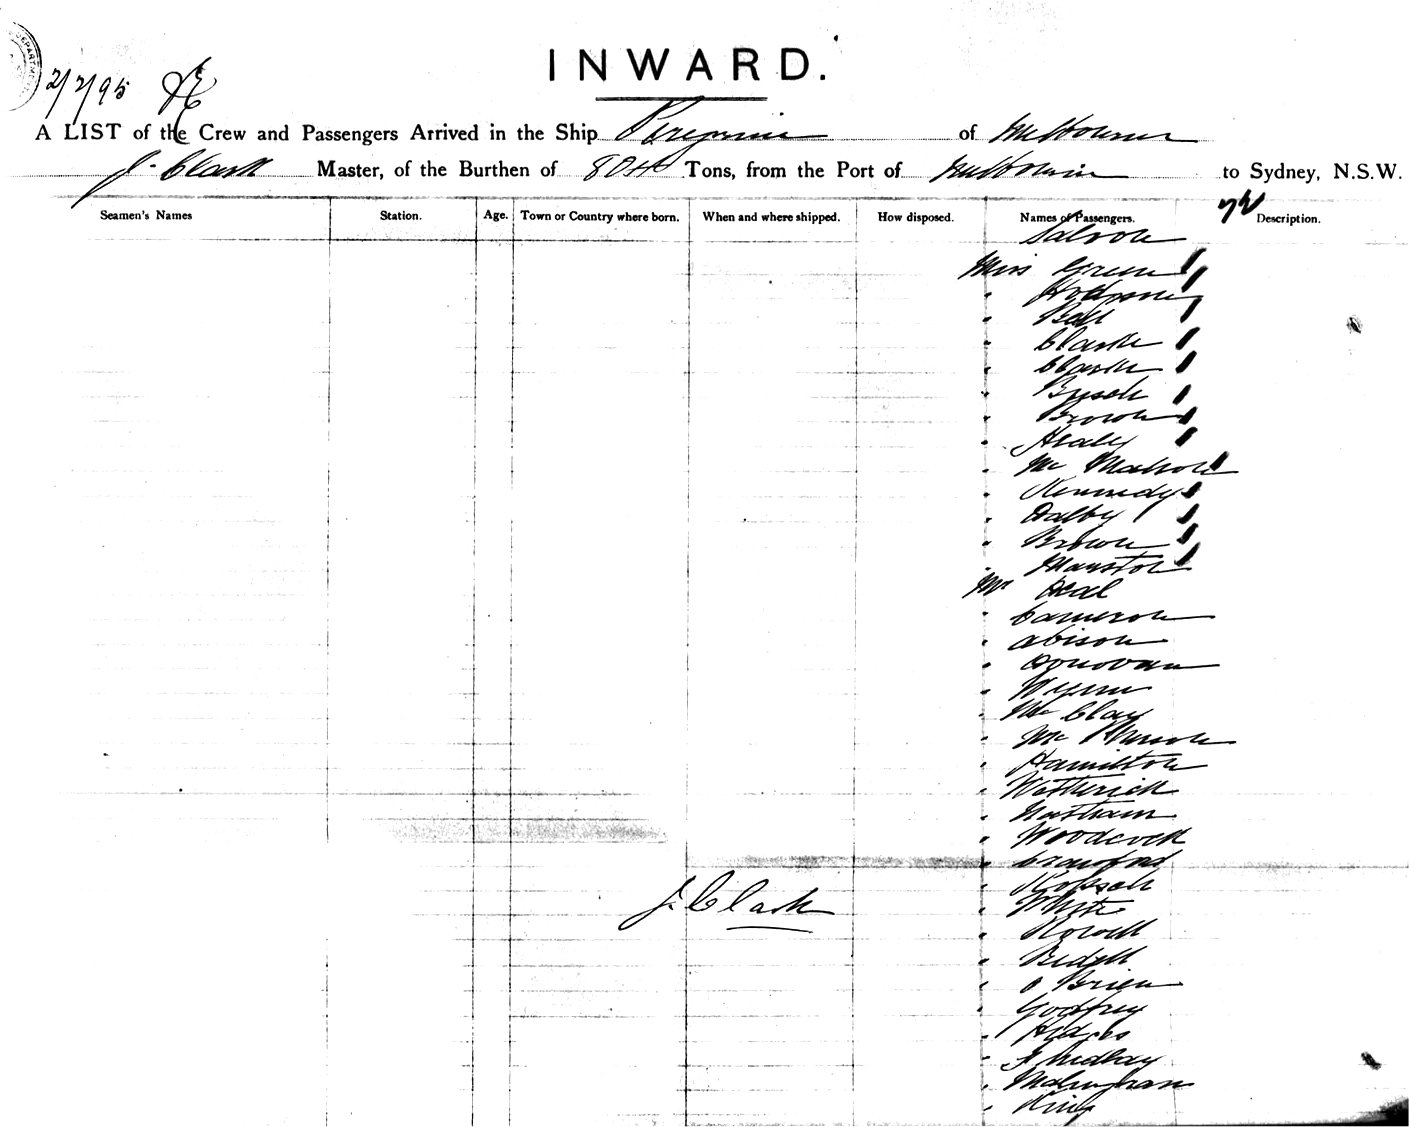 INWARD.
2/2/95
A LIST of the Crew and Passengers Arrived in the Ship Peregrine of Melbourne
J. Clark Master, of the Burthen of Tons, from the Port of Melbourne to Sydney, N.S.W.
Seamen's Names Station. Age. Town or Country where born. When and where shipped. How disposed. Names of Passengers. Description.
Saloon
Miss Green
" Hodgson
" Ball
" Clarke
" Clarke
" Busch
" Brown
" Healy
" Mc Mahon
" Kennedy
" Dalby
" Brown
" Manston
Mr Deal
" Cameron
" Abison
" Donovan
" Wynne
" Mc Clay
" Mc
" Hamilton
" Wetherick
" Northam
" Woodcock
" Crawford
" Kopsch
J. Clark
" White
" Howell
" Bidgll
" O Brien
" Godfrey
" Hedges
" Findlay
"
" King